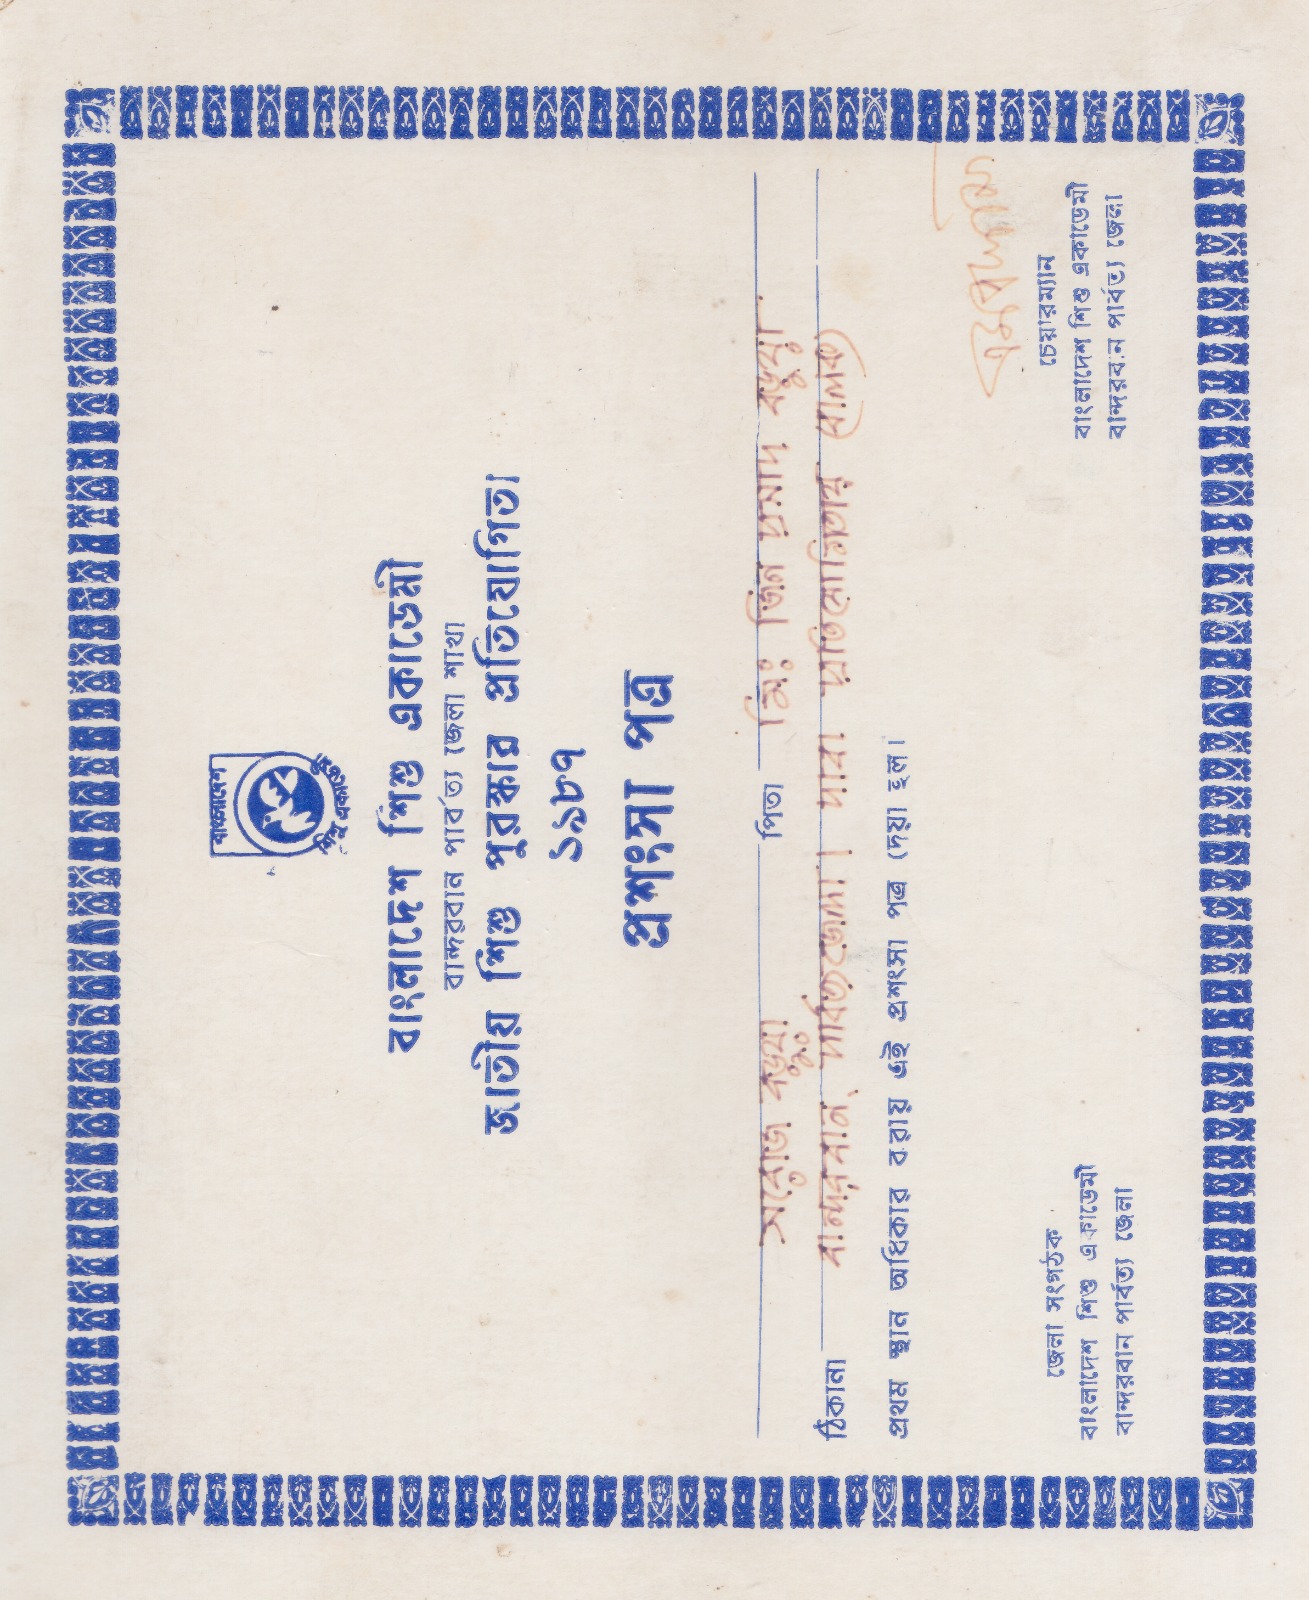 বাংলাদেশ
শিশু একাডেমী
বাংলাদেশ শিশু একাডেমী
বান্দরবান পার্বত্য জেলা শাখা
জাতীয় শিশু পুরস্কার প্রতিযোগিতা
১৯৮৭
প্রশংসা পত্র
সরোজ বড়ুয়া পিতা মিঃ জিন প্রসাদ বড়ুয়া
ঠিকানা বান্দরবান, পার্বত্য জেলা। দাবা প্রতিযোগিতায় (বালক)
প্রথম স্থান অধিকার করায় এই প্রশংসা পত্র দেয়া হল।
জেলা সংগঠক
বাংলাদেশ শিশু একাডেমী
বান্দরবান পার্বত্য জেলা
চেয়ারম্যান
বাংলাদেশ শিশু একাডেমী
বান্দরবান পার্বত্য জেলা